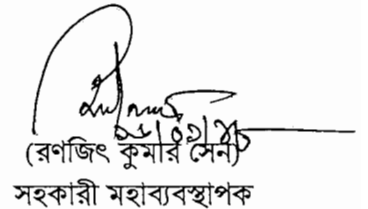 (রণজিৎ কুমার সেন)
সহকারী মহাব্যবস্থাপক